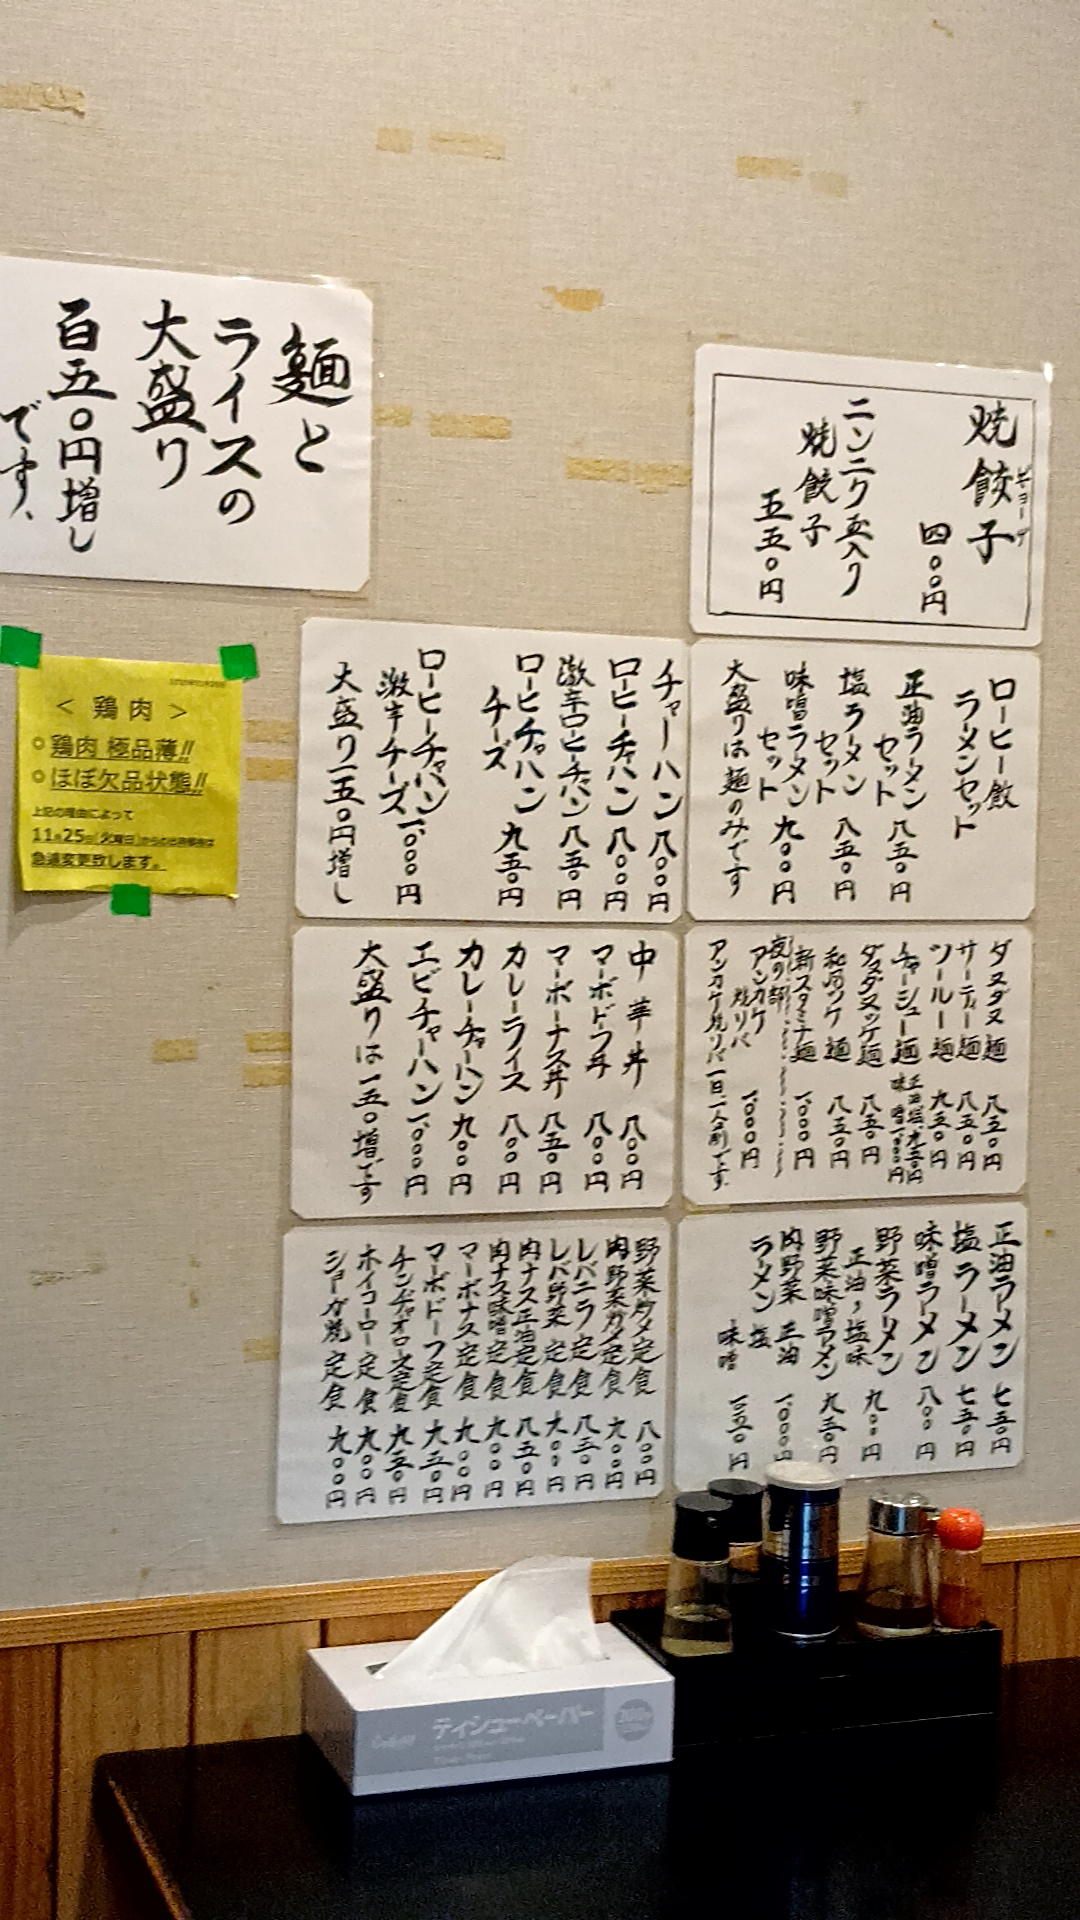 麺と
ライスの
大盛り
百五〇円増し
です、
焼餃子
ギョーザ
四〇〇円
ニンニク玉入り
焼餃子
五五〇円
<鶏肉>
○鶏肉 極品薄!!
○ほぼ欠品状態!!
上記の理由によって
11月25日(火曜日)からの
急遽変更致します。
チャーハン 八〇〇円
ロヒーチャハン 八〇〇円
激辛ロヒーチャハン 八五〇円
ロヒーチャハン
チーズ 九五〇円
ロヒーチャハン
激辛チーズ 一、〇〇〇円
大盛り一五〇円増し
ロヒー飯
ラーメンセット
正油ラーメン
セット 八五〇円
塩ラーメン
セット 八五〇円
味噌ラーメン
セット 九〇〇円
大盛りは麺のみです
中華丼 八〇〇円
マーボドーフ丼 八〇〇円
マーボーナス丼 八五〇円
カレーライス 八〇〇円
カレーチャーハン 九〇〇円
エビチャーハン 一、〇〇〇円
大盛りは一五〇増です
ダヌダヌ麺 八五〇円
サーディー麺 八五〇円
ツールー麺 九五〇円
チャーシュー麺 正油塩 九五〇円
味噌 一、〇〇〇円
ダヌダヌツケ麺 八五〇円
和風ツケ麺 八五〇円
新スタミナ麺 一、〇〇〇円
夜の部
アンカケ
焼リバ 一、〇〇〇円
アンカケ焼リバ一日、一人前です。
野菜炒メ定食 八〇〇円
肉野菜炒メ定食 九〇〇円
レバニラ定食 八五〇円
レバ野菜定食 九〇〇円
肉ナス正油定食 八五〇円
肉ナス味噌定食 九〇〇円
マーボナス定食 九〇〇円
マーボドーフ定食 九五〇円
チンジャオロース定食 九五〇円
ホイコーロー定食 九〇〇円
ショーガ焼定食 九〇〇円
正油ラーメン 七五〇円
塩ラーメン 七五〇円
味噌ラーメン 八〇〇円
野菜ラーメン
正油、塩味 九〇〇円
野菜味噌ラーメン 九五〇円
肉野菜 正油 一、〇〇〇円
ラーメン 塩
味噌 一、〇五〇円
ティシューペーパー